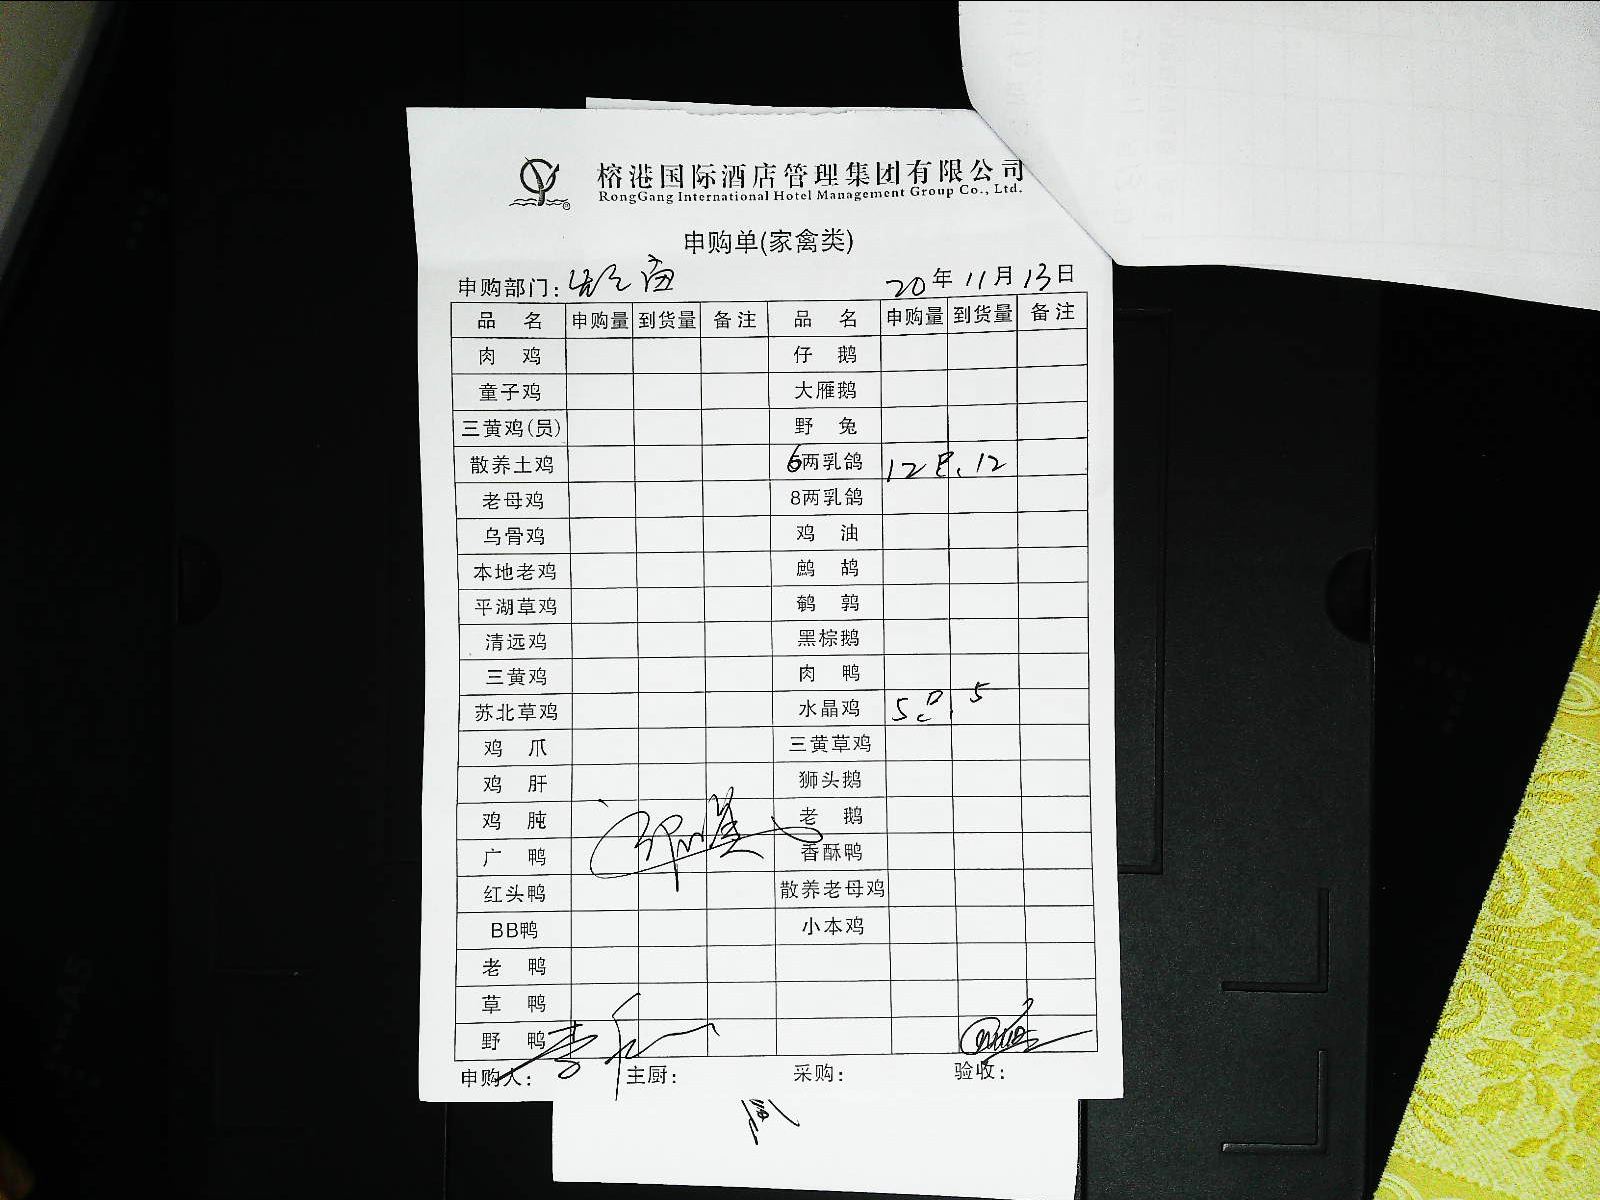 榕港国际酒店管理集团有限公司
RongGang International Hotel Management Group Co., Ltd.
申购单(家禽类)
申购部门: 20年11月13日
品名 申购量 到货量 备注 品名 申购量 到货量 备注
肉鸡 仔鹅
童子鸡 大雁鹅
三黄鸡(员) 野兔
散养土鸡 6两乳鸽 12只. 12
老母鸡 8两乳鸽
乌骨鸡 鸡油
本地老鸡 鹧鸪
平湖草鸡 鹌鹑
清远鸡 黑棕鹅
三黄鸡 肉鸭
苏北草鸡 水晶鸡 5只. 5
鸡爪 三黄草鸡
鸡肝 狮头鹅
鸡肫 老鹅
广鸭 香酥鸭
红头鸭 散养老母鸡
BB鸭 小本鸡
老鸭
草鸭
野鸭
申购人: 主厨: 采购: 验收: